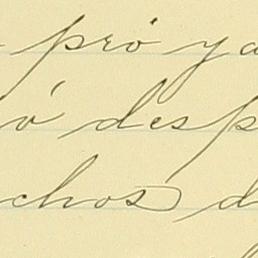 pró ya
ó desp
chos d